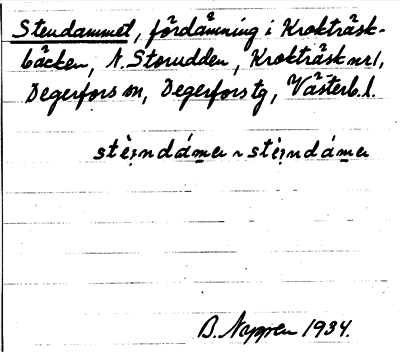 Stendammet, fördämning i Krokträsk-
bäcken, N. Storudden, Krokträsk nr 1,
Degerfors sn, Degerfors tg, Västerb. l.
stèi̯ndámə ~ stèi̯ndámə
B. Nygren 1934.